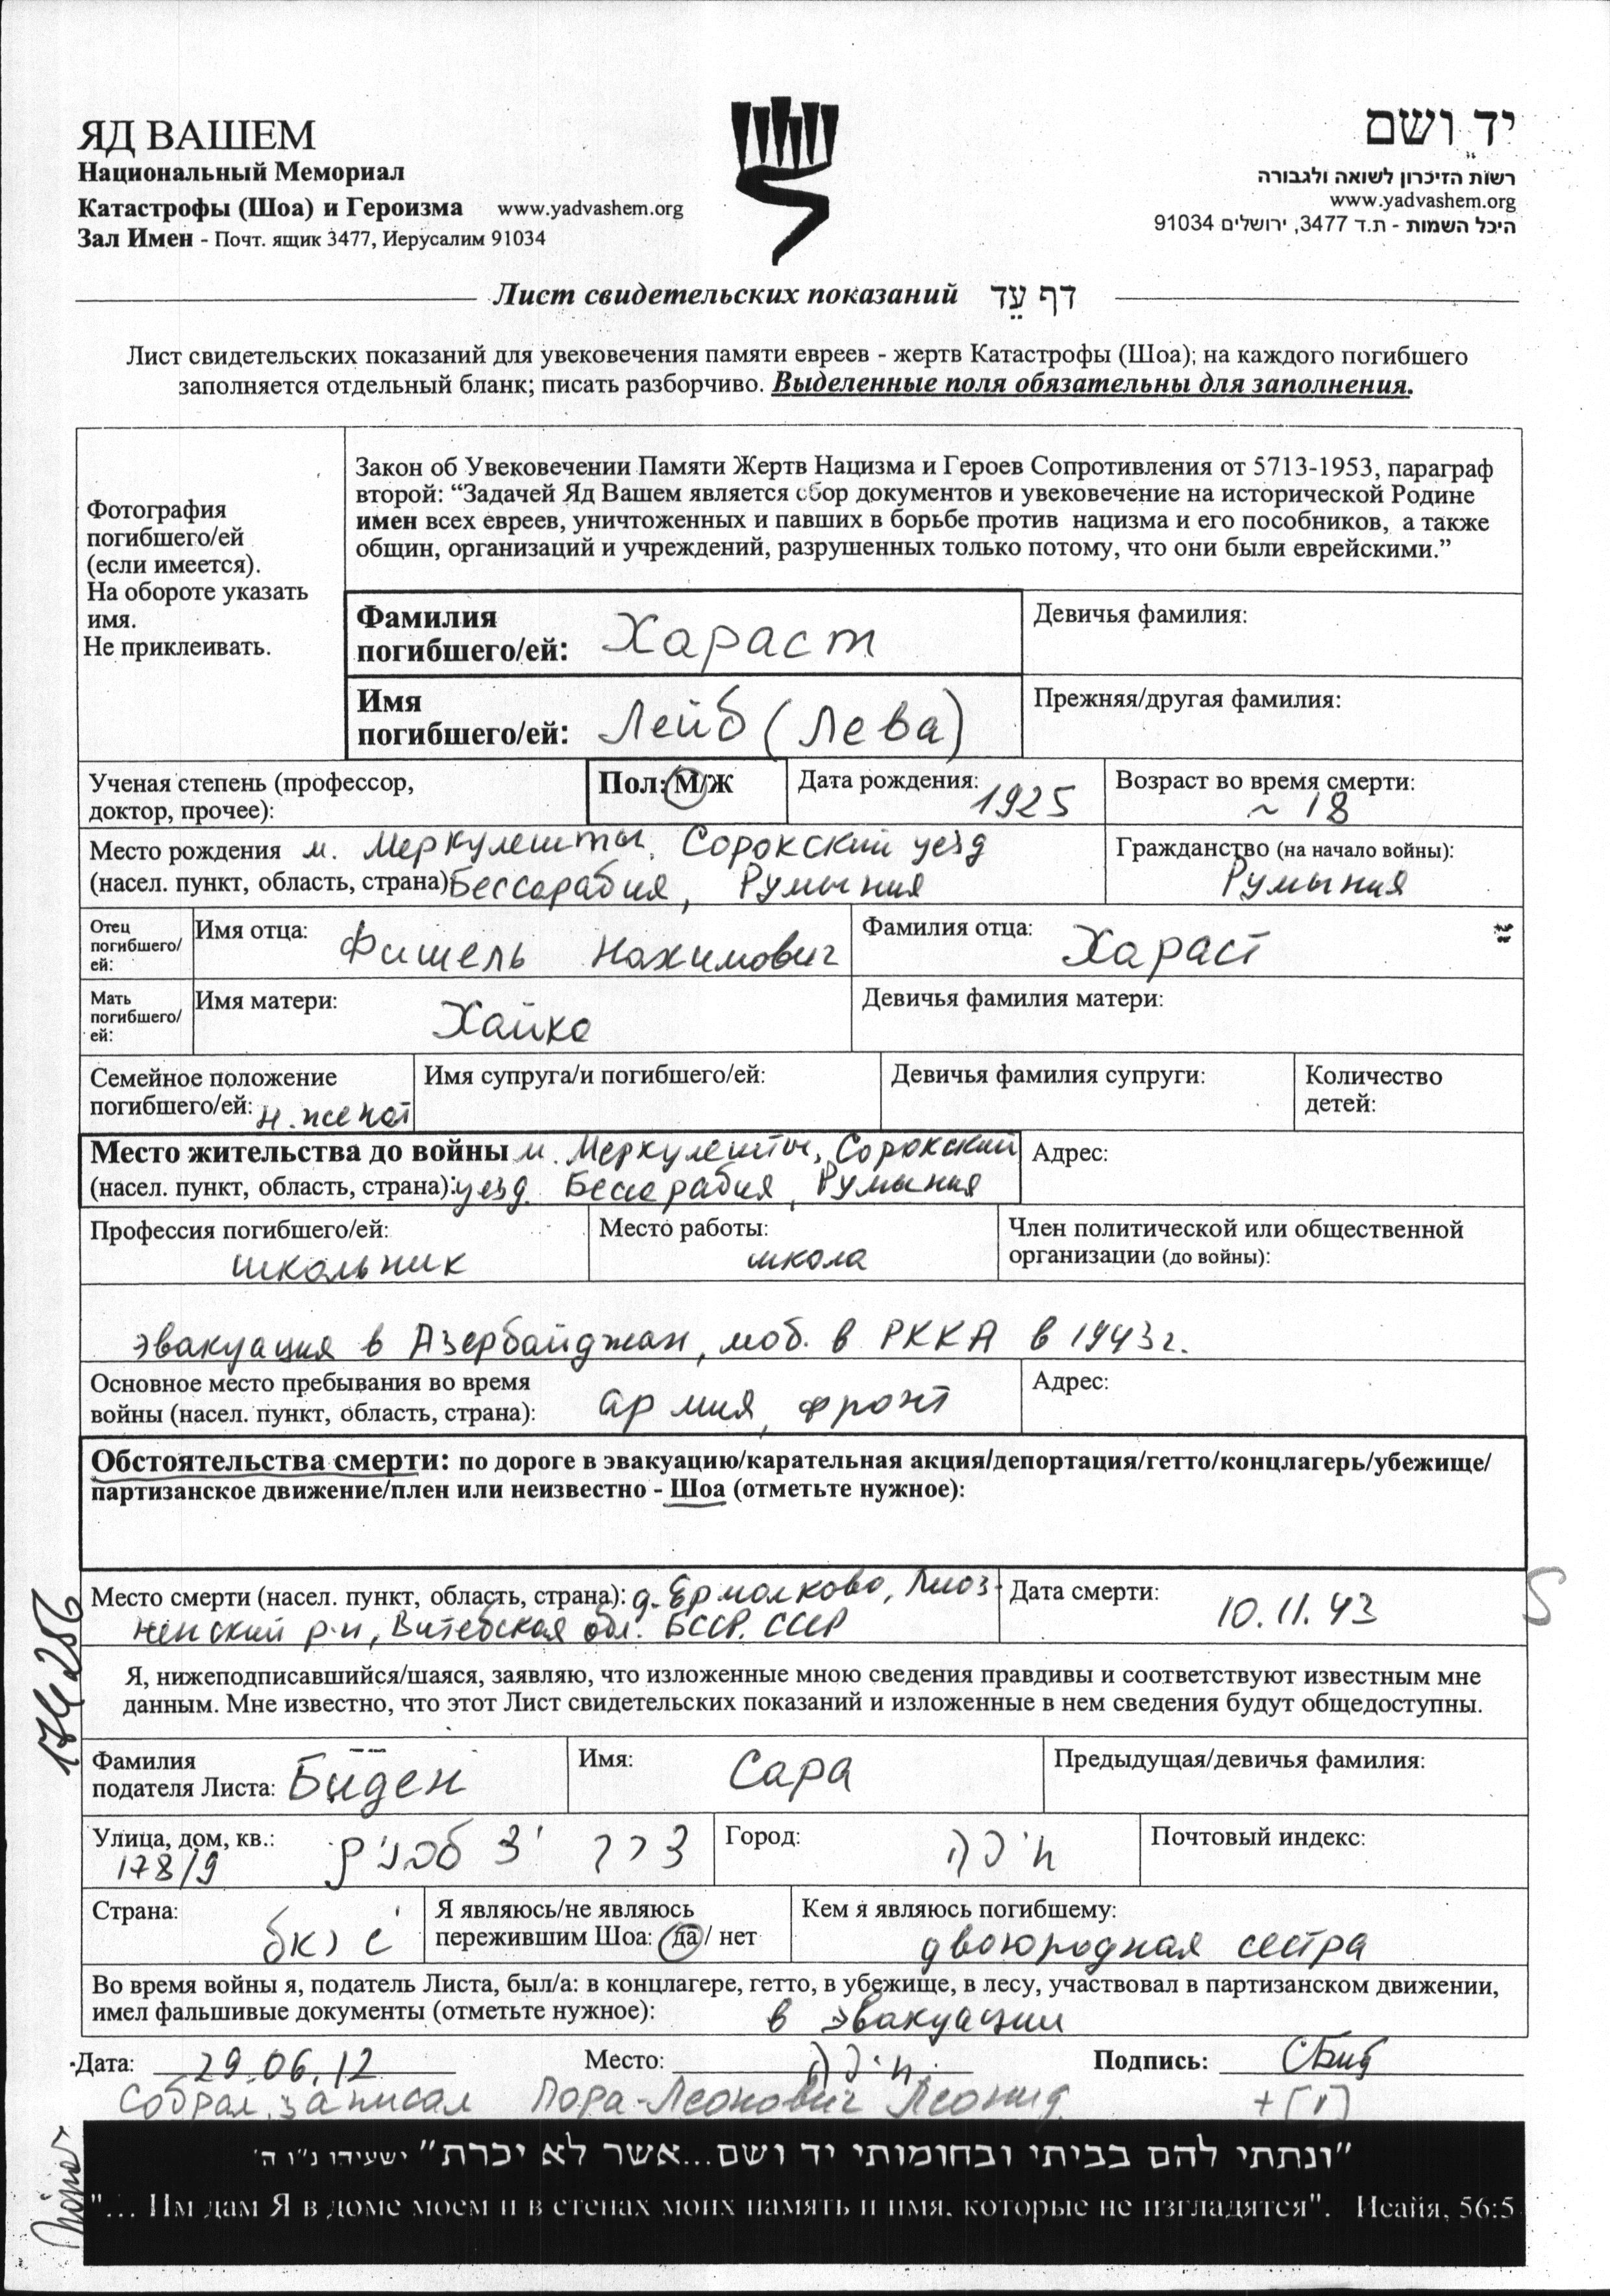 ЯД ВАШЕМ
Национальный Мемориал
Катастрофы (Шоа) и Героизма www.yadvashem.org
Зал Имен - Почт. ящик 3477, Иерусалим 91034
יד ושם
רשות הזיכרון לשואה ולגבורה
www.yadvashem.org
היכל השמות - ת.ד 3477, ירושלים 91034
Лист свидетельских показаний דף עֵד
Лист свидетельских показаний для увековечения памяти евреев - жертв Катастрофы (Шоа); на каждого погибшего
заполняется отдельный бланк; писать разборчиво. Выделенные поля обязательны для заполнения.
Фотография
погибшего/ей
(если имеется).
На обороте указать
имя.
Не приклеивать.
Закон об Увековечении Памяти Жертв Нацизма и Героев Сопротивления от 5713-1953, параграф
второй: “Задачей Яд Вашем является сбор документов и увековечение на исторической Родине
имен всех евреев, уничтоженных и павших в борьбе против нацизма и его пособников, а также
общин, организаций и учреждений, разрушенных только потому, что они были еврейскими.”
Фамилия
погибшего/ей: Хараст
Девичья фамилия:
Имя
погибшего/ей: Лейб (Лева)
Прежняя/другая фамилия:
Ученая степень (профессор,
доктор, прочее):
Пол: М/Ж
Дата рождения: 1925
Возраст во время смерти:
~ 18
Место рождения м. Меркулешты, Сорокский уезд
(насел. пункт, область, страна) Бессарабия, Румыния
Гражданство (на начало войны):
Румыния
Отец
погибшего/
ей:
Имя отца: Фишель Нахимович
Фамилия отца: Хараст
Мать
погибшего/
ей:
Имя матери: Хайка
Девичья фамилия матери:
Семейное положение
погибшего/ей: н. женат
Имя супруга/и погибшего/ей:
Девичья фамилия супруги:
Количество
детей:
Место жительства до войны м. Меркулешты, Сорокский
(насел. пункт, область, страна): уезд. Бессарабия, Румыния
Адрес:
Профессия погибшего/ей:
школьник
Место работы:
школа
Член политической или общественной
организации (до войны):
эвакуация в Азербайджан, моб. в РККА в 1943г.
Основное место пребывания во время
войны (насел. пункт, область, страна): армия, фронт
Адрес:
Обстоятельства смерти: по дороге в эвакуацию/карательная акция/депортация/гетто/концлагерь/убежище/
партизанское движение/плен или неизвестно - Шоа (отметьте нужное):
Место смерти (насел. пункт, область, страна): д. Ермолково, Лиоз-
ненский р-н, Витебская обл. БССР. СССР
Дата смерти:
10.11.43
Я, нижеподписавшийся/шаяся, заявляю, что изложенные мною сведения правдивы и соответствуют известным мне
данным. Мне известно, что этот Лист свидетельских показаний и изложенные в нем сведения будут общедоступны.
Фамилия
подателя Листа: Биден
Имя: Сара
Предыдущая/девичья фамилия:
Улица, дом, кв.:
178/9
Город: חיפה
Почтовый индекс:
Страна:
Я являюсь/не являюсь
пережившим Шоа: да / нет
Кем я являюсь погибшему:
двоюродная сестра
Во время войны я, податель Листа, был/а: в концлагере, гетто, в убежище, в лесу, участвовал в партизанском движении,
имел фальшивые документы (отметьте нужное): в эвакуации
Дата: 29.06.12 Место: חיפה Подпись:
Собрал, записал Пора-Леонович Леонид
"ונתתי להם בביתי ובחומותי יד ושם...אשר לא יכרת" ישעיהו נ"ו ה'
"... Им дам Я в доме моем и в стенах моих память и имя, которые не изгладятся". Исайя, 56:5